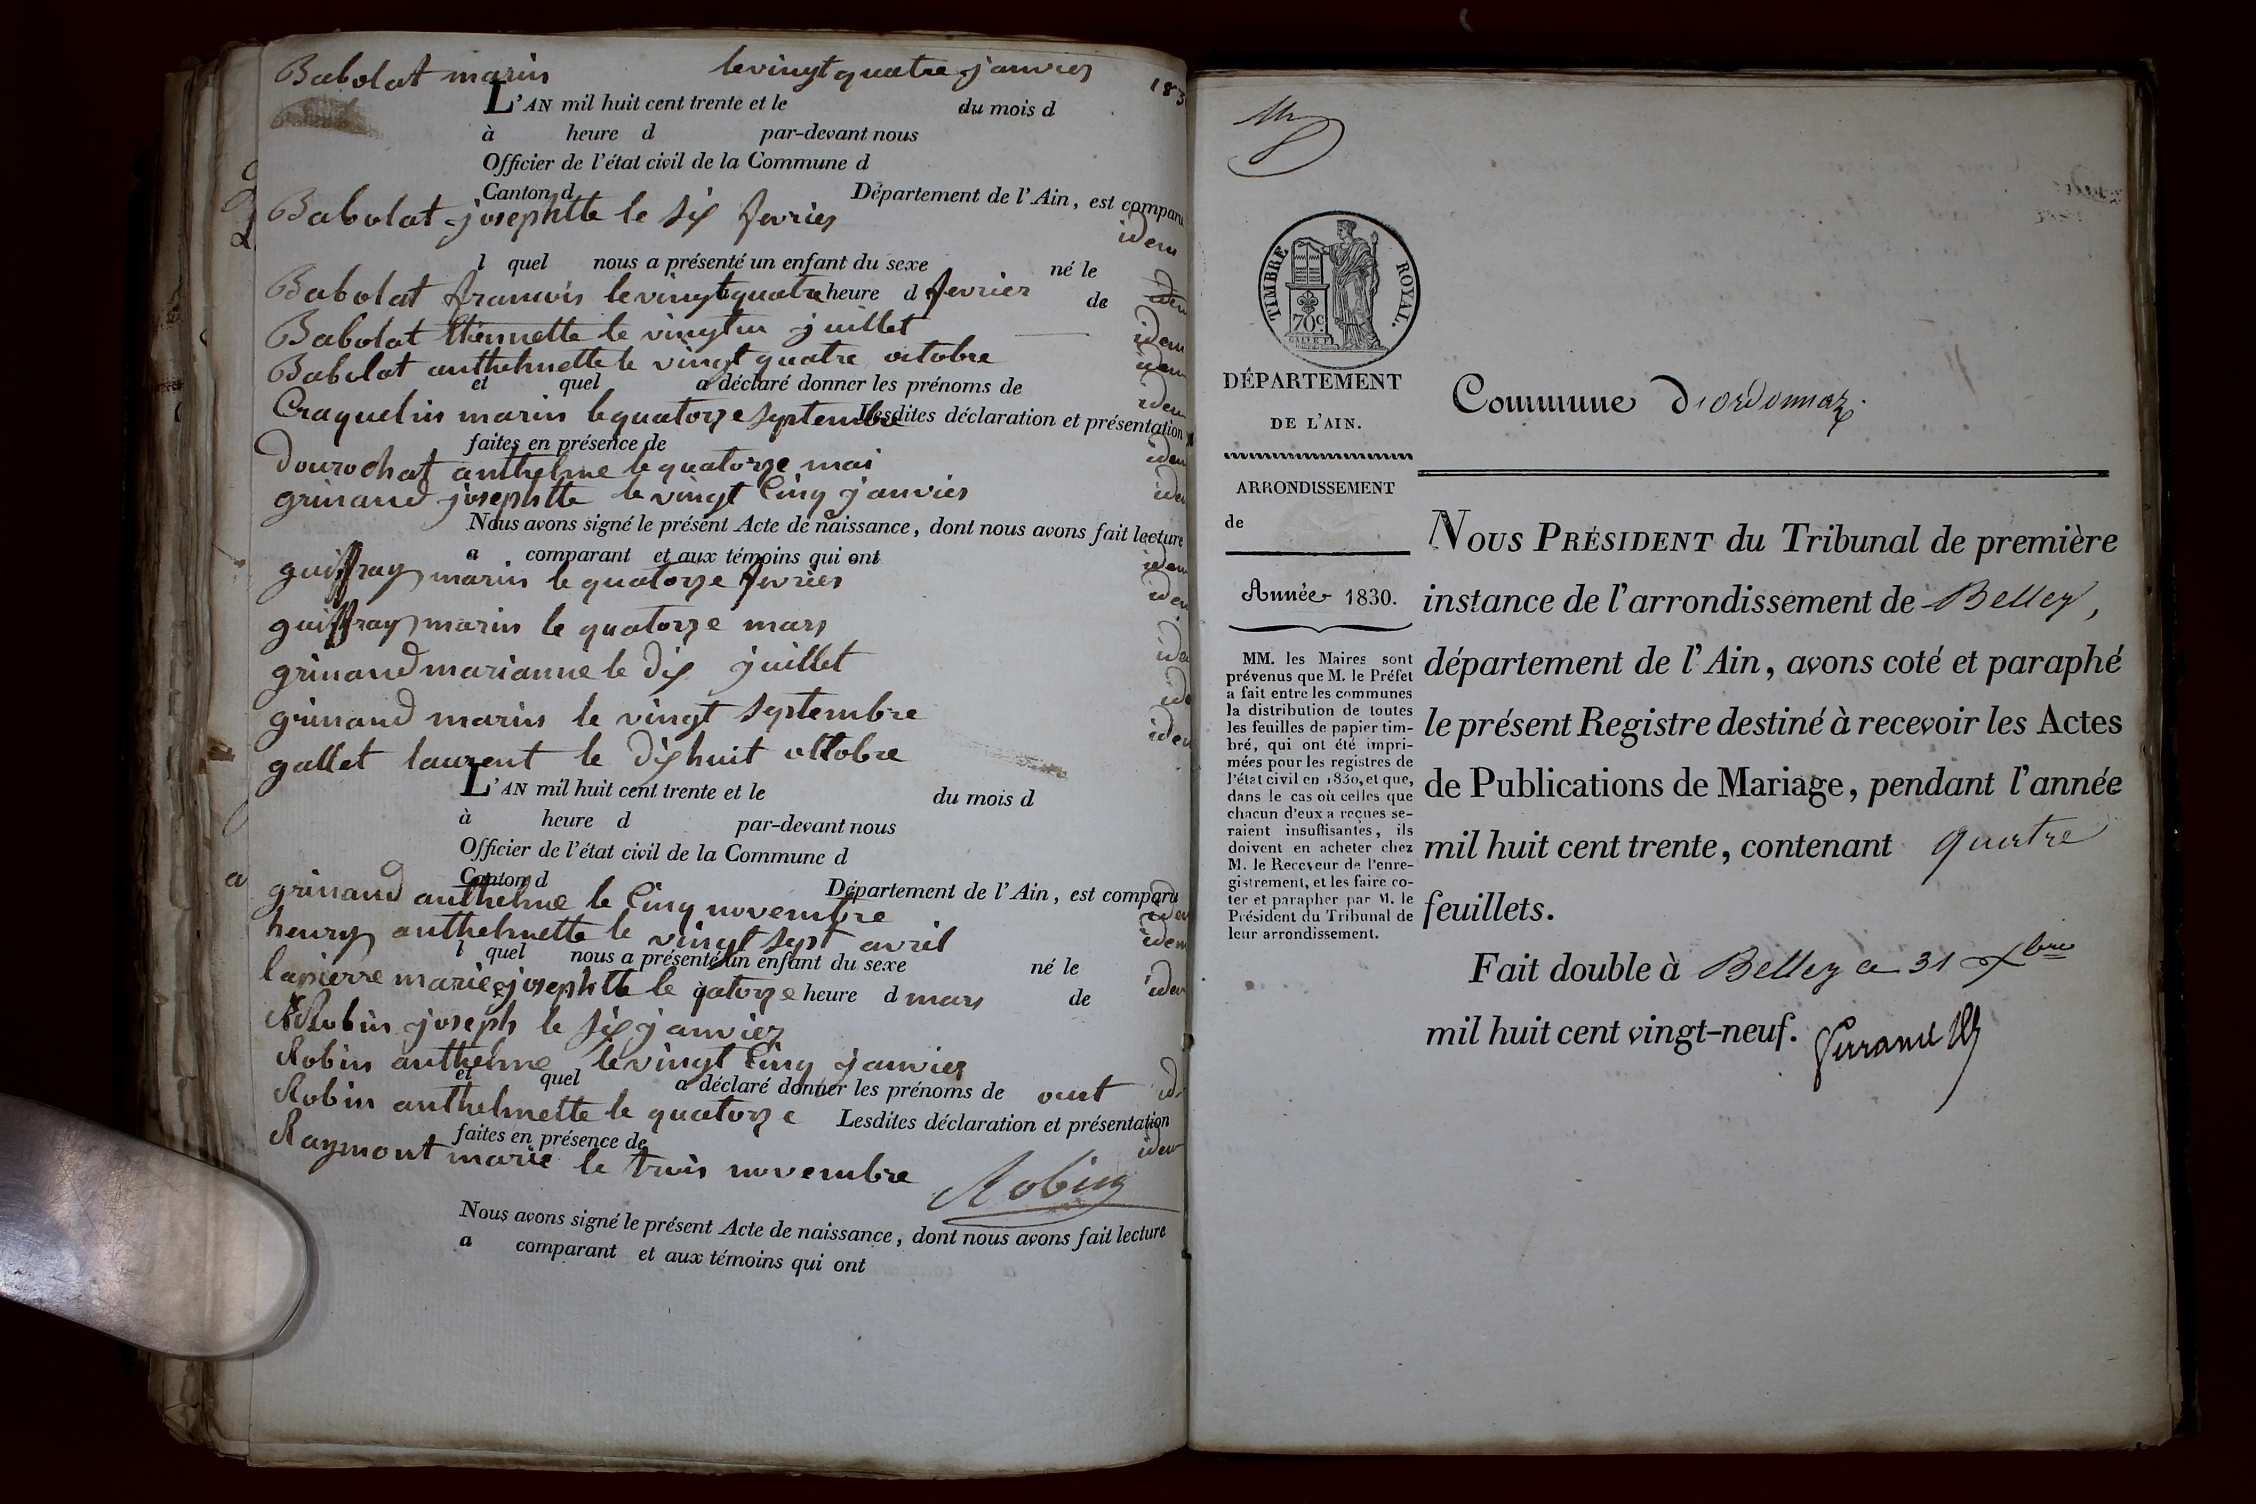 Babolat marin le vingt quatre janvier 183
L'AN mil huit cent trente et le du mois d
à heure d par-devant nous
Officier de l'état civil de la Commune d
Canton d Département de l'Ain, est comparu
Babolat josephtte le six fevrier idem
l quel nous a présenté un enfant du sexe né le
Babolat francois le vingt quatre heure d fevrier de idem
Babolat Etiennette le vingt un juillet idem
Babolat anthelmette le vingt quatre octobre idem
et quel a déclaré donner les prénoms de
Craquelin marin le quatorze septembre idem
Lesdites déclaration et présentation
faites en présence de
dourochat anthelme le quatorze mai idem
grinand josephtte le vingt Cinq janvier idem
Nous avons signé le présent Acte de naissance, dont nous avons fait lecture
a comparant et aux témoins qui ont
guiffray marin le quatorze fevrier idem
guiffray marin le quatorze mars idem
grinand marianne le dix juillet idem
grinand marin le vingt septembre ide
gallet laurent le dix huit octobre idem
L'AN mil huit cent trente et le du mois d
à heure d par-devant nous
Officier de l'état civil de la Commune d
Canton d Département de l'Ain, est comparu
grinand anthelme le Cinq novembre idem
henry anthelmette le vingt sept avril idem
l quel nous a présenté un enfant du sexe né le
lapierre marie josephtte le qatorze heure d mars de idem
Robin joseph le six janvier
Robin anthelme le vingt Cinq janvier
et quel a déclaré donner les prénoms de
Robin anthelmette le quatorze out id
Lesdites déclaration et présentation
faites en présence de
Raymont marie le trois novembre idem
Robin
Nous avons signé le présent Acte de naissance, dont nous avons fait lecture
a comparant et aux témoins qui ont
TIMBRE ROYAL.
70c
DÉPARTEMENT
DE L'AIN.
Commune d'ordonnaz.
ARRONDISSEMENT
de
Année 1830.
MM. les Maires sont
prévenus que M. le Préfet
a fait entre les communes
la distribution de toutes
les feuilles de papier tim-
bré, qui ont été impri-
mées pour les registres de
l'état civil en 1830, et que,
dans le cas où celles que
chacun d'eux a reçues se-
raient insuffisantes, ils
doivent en acheter chez
M. le Receveur de l'enre-
gistrement, et les faire co-
ter et parapher par M. le
Président du Tribunal de
leur arrondissement.
NOUS PRÉSIDENT du Tribunal de première
instance de l'arrondissement de Belley,
département de l'Ain, avons coté et paraphé
le présent Registre destiné à recevoir les Actes
de Publications de Mariage, pendant l'année
mil huit cent trente, contenant quatre
feuillets.
Fait double à Belley ce 31 Xbre
mil huit cent vingt-neuf.